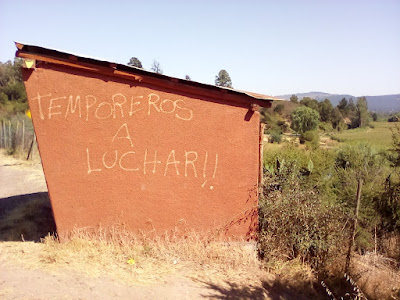 TEMPOREROS
A
LUCHAR!!